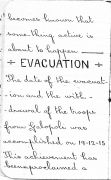 becomes known that
something active is
about to happen
EVACUATION
The date of the evacuat-
-ion and the with-
-drawal of the troops
from Galopoli was
accomplished on 19-12-15
This achievement has
been proclaimed a